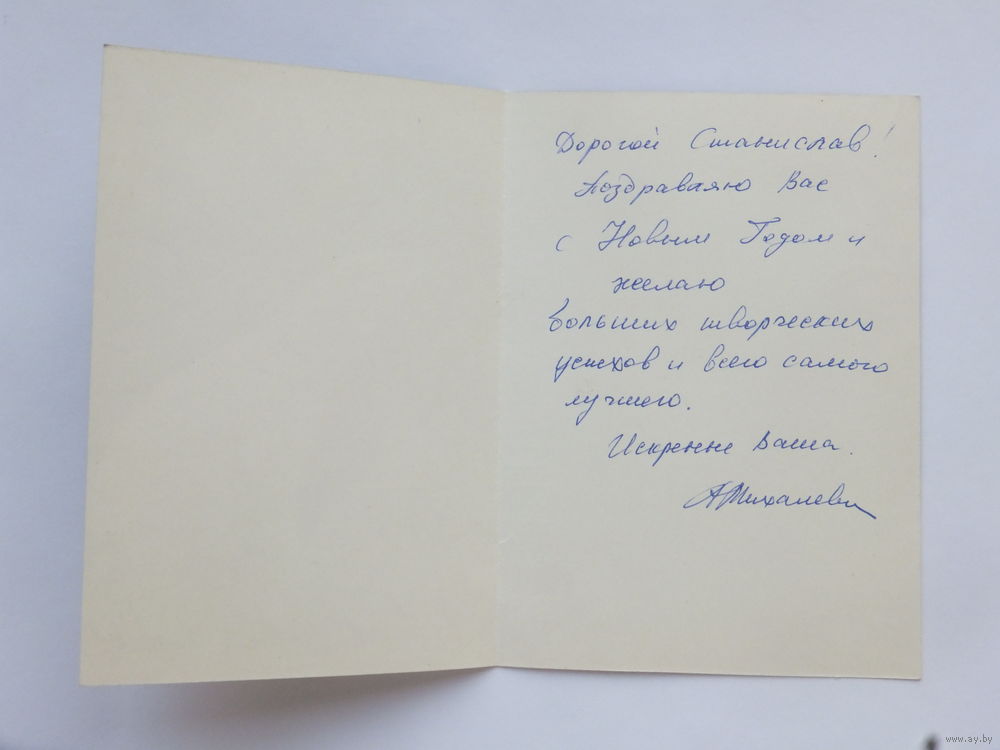 Дорогой Станислав!
Поздравляю Вас
с Новым Годом и
желаю
больших творческих
успехов и всего самого
лучшего.
Искренне Ваша.
www.ay.by